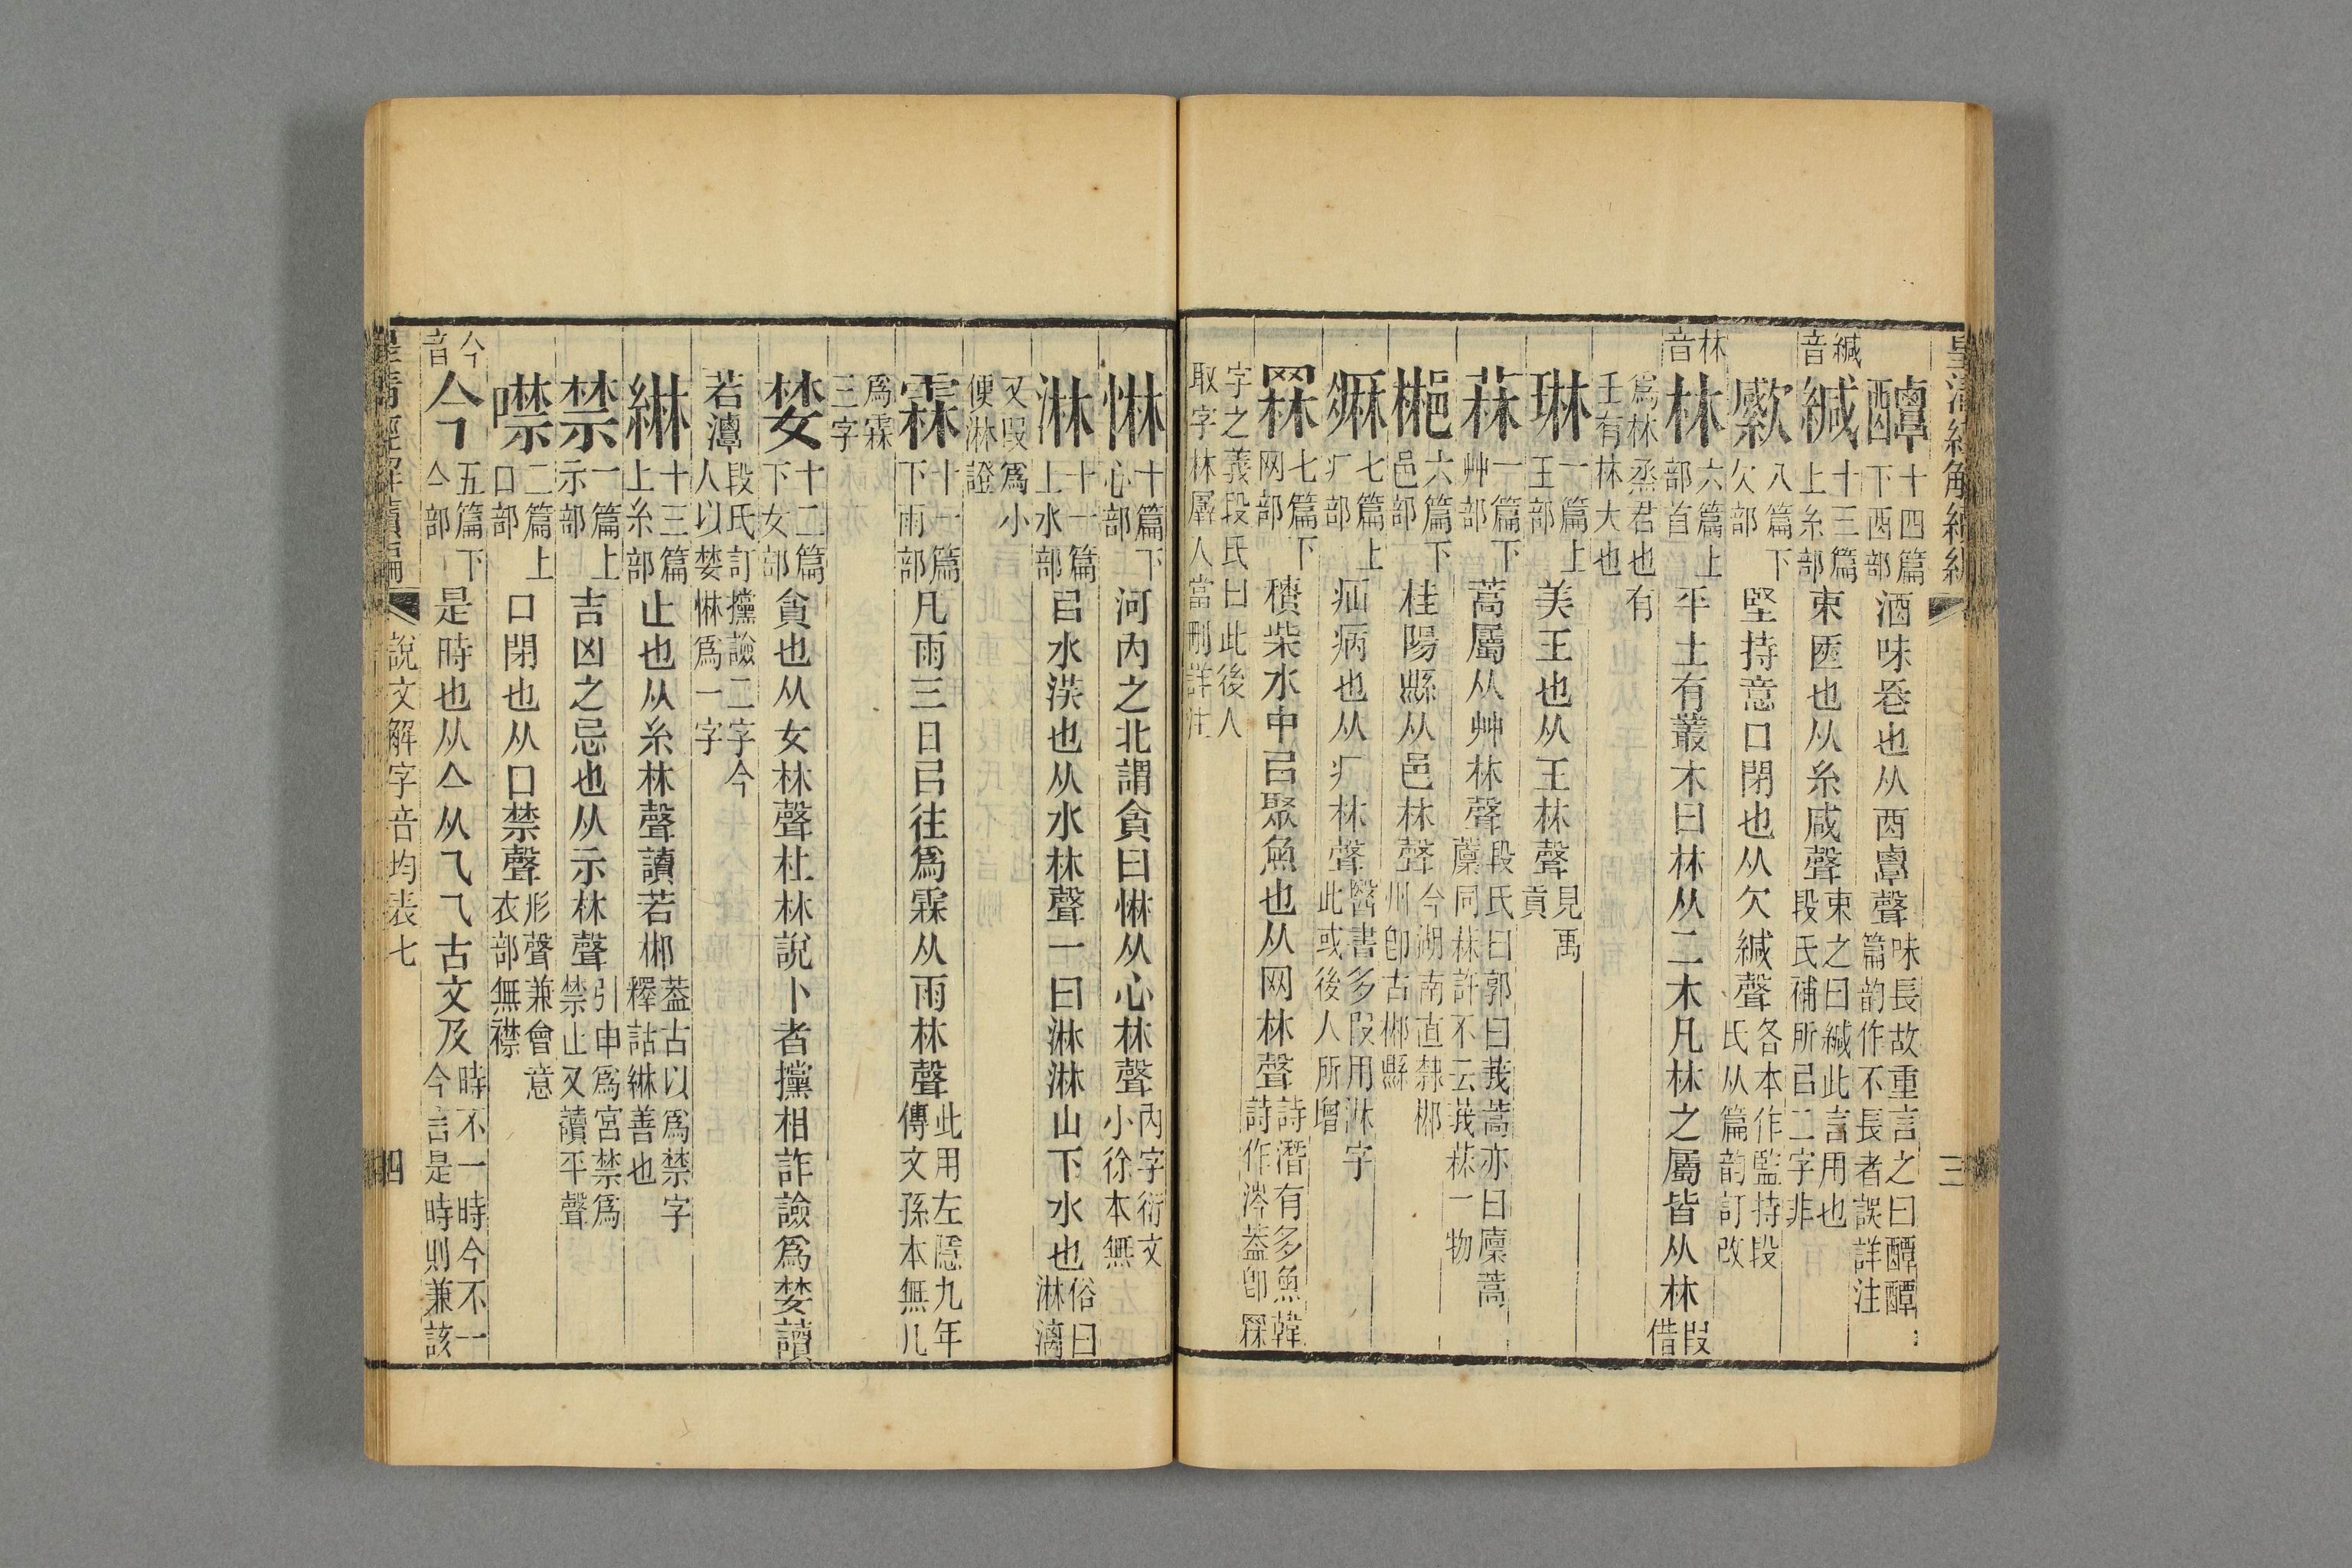 皇清經解續編
三
䤄十四篇下酉部酒味卷也从酉覃聲味長故重言之曰䤄䤄篇韵作不長者誤詳注
緘音
緘十三篇上糸部束匧也从糸咸聲束之曰緘此言用也段氏補所㠯二字非
𣤶八篇下欠部堅持意口閉也从欠緘聲各本作監持段氏从篇韵訂改
林音
林六篇上部首平土有叢木曰林从二木凡林之屬皆从林叚借
爲林烝君也有壬有林大也
琳一篇上王部美王也从王林聲見禹貢
菻一篇下艸部蒿屬从艸林聲段氏曰郭曰莪蒿亦曰廩蒿藁同菻許不云莪菻一物
郴六篇下邑部桂陽縣从邑林聲今湖南直隸郴州卽古郴縣
痳七篇上疒部疝病也从疒林聲醫書多叚用淋字此或後人所增
罧七篇下网部積柴水中㠯聚魚也从网林聲詩潛有多魚韓詩作涔葢卽罧
字之義段氏曰此後人取字林羼人當刪詳注
惏十篇下心部河內之北謂貪曰惏从心林聲內字衍文小徐本無
淋十一篇上水部㠯水䓘也从水林聲一曰淋淋山下水也俗曰淋漓
又叚爲小便淋證
霖十一篇下雨部凡雨三日㠯往爲霖从雨林聲此用左隱九年傳文孫本無凡
爲霖三字
婪十二篇下女部貪也从女林聲杜林說卜者攩相詐譣爲婪讀
若潭段氏訂攩譣二字今人以婪惏爲一字
綝十三篇上糸部止也从糸林聲讀若郴葢古以爲禁字釋詁綝善也
禁一篇上示部吉凶之忌也从示林聲引申爲宮禁爲禁止又讀平聲
噤二篇上口部口閉也从口禁聲形聲兼會意衣部無襟
今音
今五篇下亼部是時也从亼从乁乁古文及時不一時今不一今言是時則兼該
皇清經解續編
說文解字音均表七
四